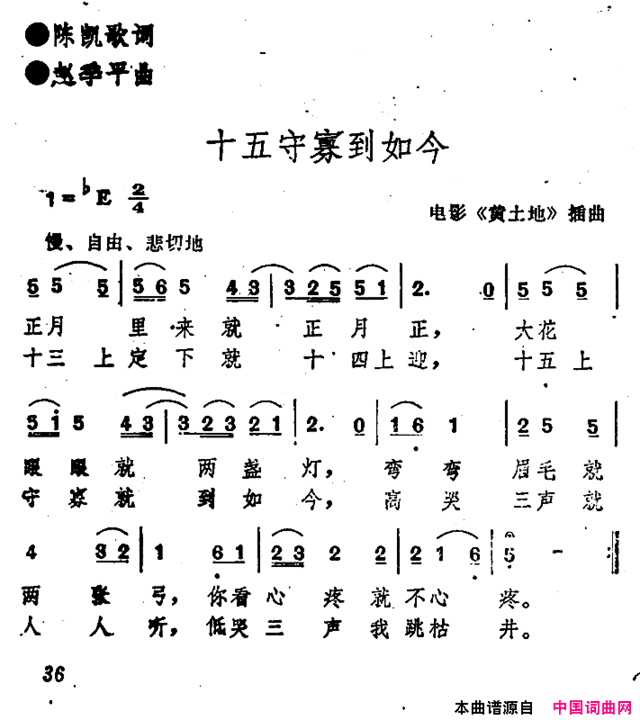 ●陈凯歌词
●赵季平曲
十五守寡到如今
1=♭E 2/4
电影《黄土地》插曲
慢、自由、悲切地
5 5 5 | 5 6 5 4 3 | 3 2 5 5 1 | 2. 0 | 5 5 5 |
正月 里来就 正月正, 大花
十三 上定下就 十四上迎, 十五上
5 i 5 4 3 | 3 2 3 2 1 | 2. 0 | 1 6 1 | 2 5 5 |
眼眼就 两盏灯, 弯弯 眉毛就
守寡就 到如今, 高哭 三声就
4 3 2 | 1 6 1 | 2 3 2 2 | 2 1 6 | 5 - :||
两张弓, 你看心疼就不心疼。
人人听, 低哭三声我跳枯井。
36
本曲谱源自 中国词曲网